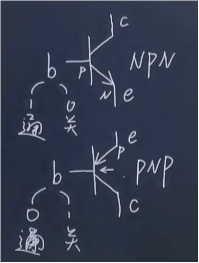 c
b P NPN
N e
1 0
通 关
e
b P PNP
c
0 1
通 关